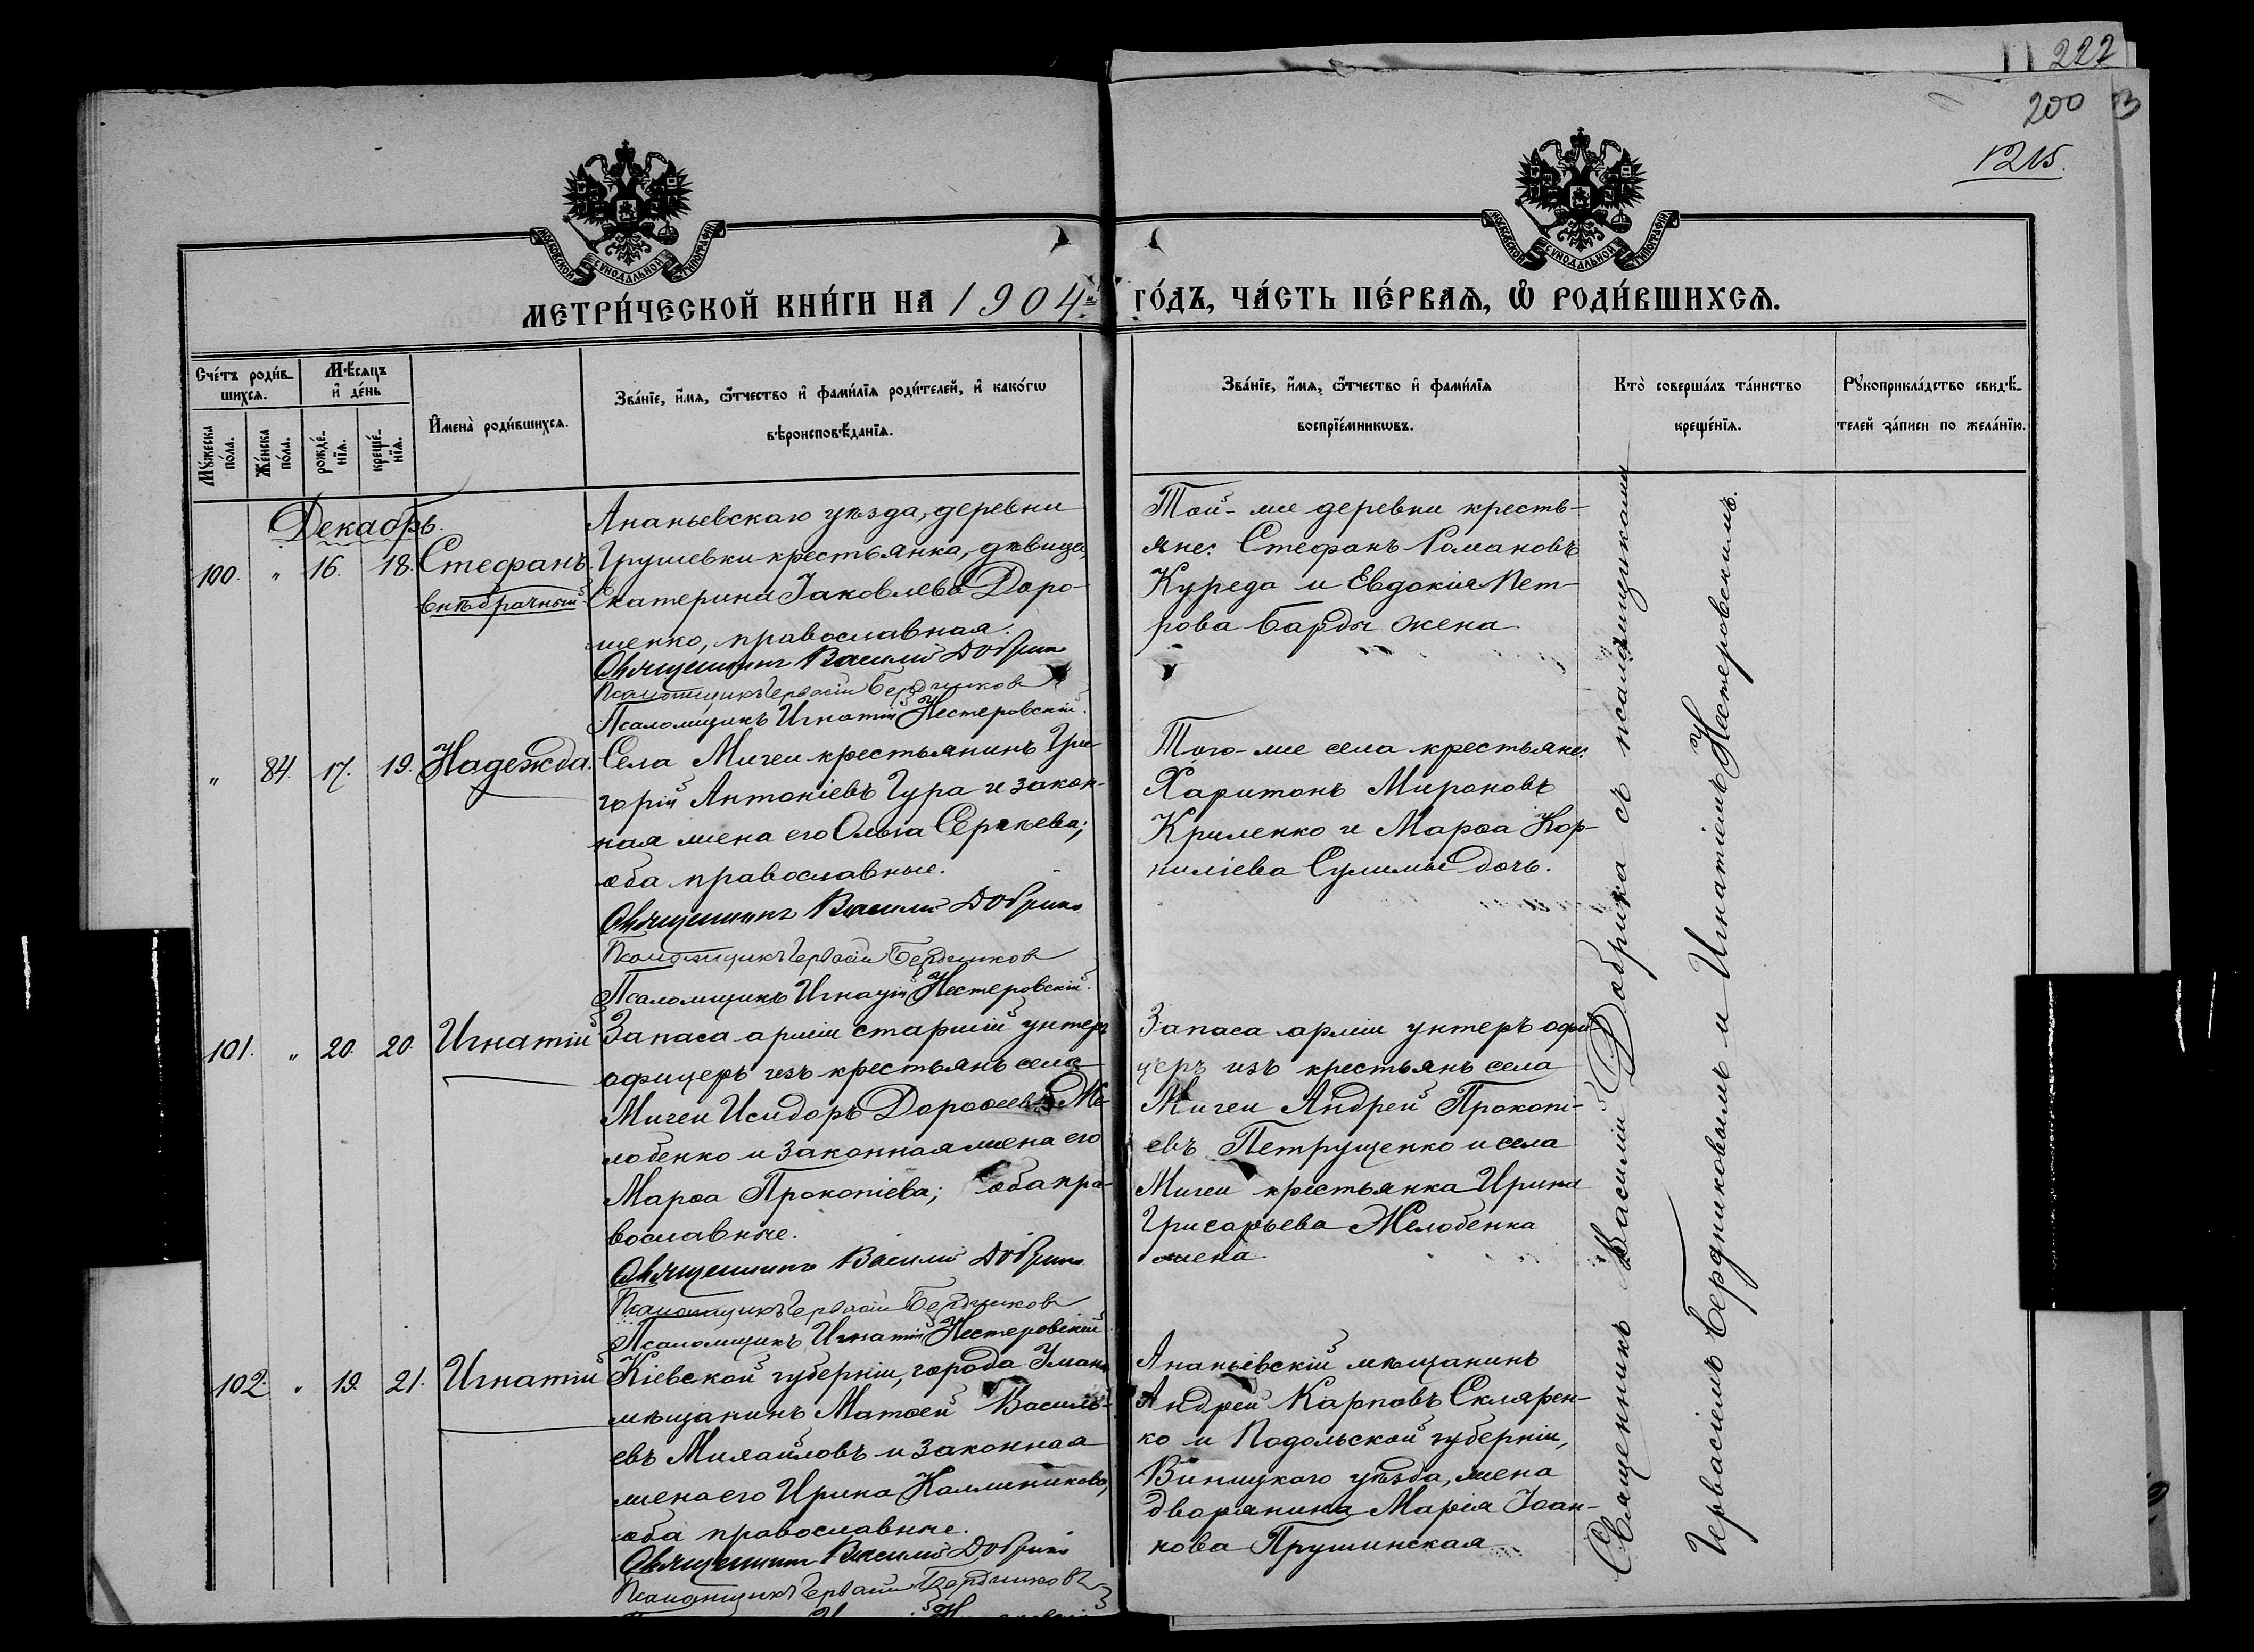 222
200
1215.
МОСКОВСКОЙ СѴНОДАЛЬНОЙ ТИПОГРАФІИ
МОСКОВСКОЙ СѴНОДАЛЬНОЙ ТИПОГРАФІИ
МЕТРИ́ЧЕСКОЙ КНИ́ГИ НА 1904й ГО́ДЪ, ЧА́СТЬ ПЕ́РВАѦ, Ѽ РОДИ́ВШИХСѦ.
Сче́тъ роди́вшихсѧ.
Мꙋ́жеска по́ла.
Же́нска по́ла.
Мѣ́сѧцъ и҆ де́нь
рожде́нїѧ.
креще́нїѧ.
И҆мена̀ роди́вшихсѧ.
Зва́нїе, и҆́мѧ, ѻ҆́тчество и҆ фами́лїѧ роди́телей, и҆ како́гѡ
вѣроисповѣ́данїѧ.
Зва́нїе, и҆́мѧ, ѻ҆́тчество и҆ фами́лїѧ
воспрїе́мникѡвъ.
Кто̀ соверша́лъ та́инство
креще́нїѧ.
Рꙋкоприкла́дство свидѣ́-
телей за́писи по жела́нїю.
Декабрь.
100. " 16. 18. Стефанъ.
внѣбрачный
Ананьевскаго уѣзда, деревни
Грушевки крестьянка, дѣвица,
Екатерина Іаковлева Доро-
шенко, православная.
Священникъ Василій Добрика
Псаломщикъ Гервасій Бердниковъ
Псаломщикъ Игнатій Нестеровскій.
Той-же деревни кресть-
яне: Стефанъ Романовъ
Куреда и Евдокія Пет-
рова Барды жена
" 84. 17. 19. Надежда.
Села Мигеи крестьянинъ Гри-
горій Антоніевъ Гура и закон-
ная жена его Ольга Сергѣева;
оба православные.
Священникъ Василій Добрика
Псаломщикъ Гервасій Бердниковъ
Псаломщикъ Игнатій Нестеровскій.
Того-же села крестьяне:
Харитонъ Мироновъ
Криленко и Марѳа Кор-
ниліева Сулимы дочь.
101. " 20. 20. Игнатій
Запаса арміи старшій унтеръ
офицеръ изъ крестьянъ села
Мигеи Исидоръ Дороѳеевъ Же-
лобенко и законная жена его
Марѳа Прокопіева; оба пра-
вославные.
Священникъ Василій Добрика
Псаломщикъ Гервасій Бердниковъ
Псаломщикъ Игнатій Нестеровскій
Запаса арміи унтеръ офи-
церъ изъ крестьянъ села
Мигеи Андрей Прокопі-
евъ Петрущенко и села
Мигеи крестьянка Ирина
Григорьева Желобенка
жена
102. " 19. 21. Игнатій
Кіевской губерніи, города Умани
мѣщанинъ Матѳей Василь-
евъ Михайловъ и законная
жена его Ирина Каллиникова,
оба православные.
Священникъ Василій Добрика
Псаломщикъ Гервасій Бердниковъ
Ананьевскій мѣщанинъ
Андрей Карповъ Скляренко
и Подольской губерніи,
Винницкаго уѣзда, жена
дворянина Марія Іоан-
нова Прушинская
Священникъ Василій Добрика съ псаломщиками
Гервасіемъ Бердниковымъ и Игнатіемъ Нестеровскимъ.